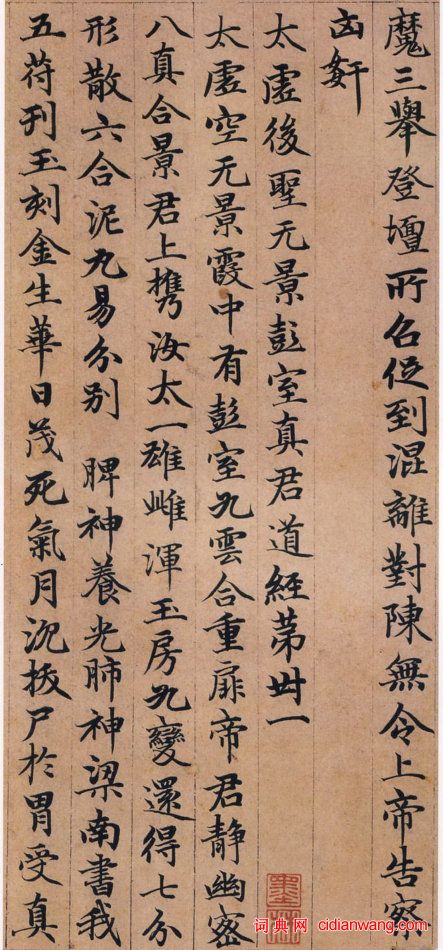 魔三舉登壇所召促到混離對陳無令上帝告察
凶姧
太虛後聖无景彭室真君道經第卅一
太虛空无景霞中有彭室九雲合重扉帝君靜幽密
八真合景君上携汝太一雄雌渾玉房九變還得七分
形散六合泥丸易分別 脾神養光肺神梁南書我
五苻刊玉刻金生華日茂死氣月沉拔尸於胃受真
墨林
词典网 cidianwang.com